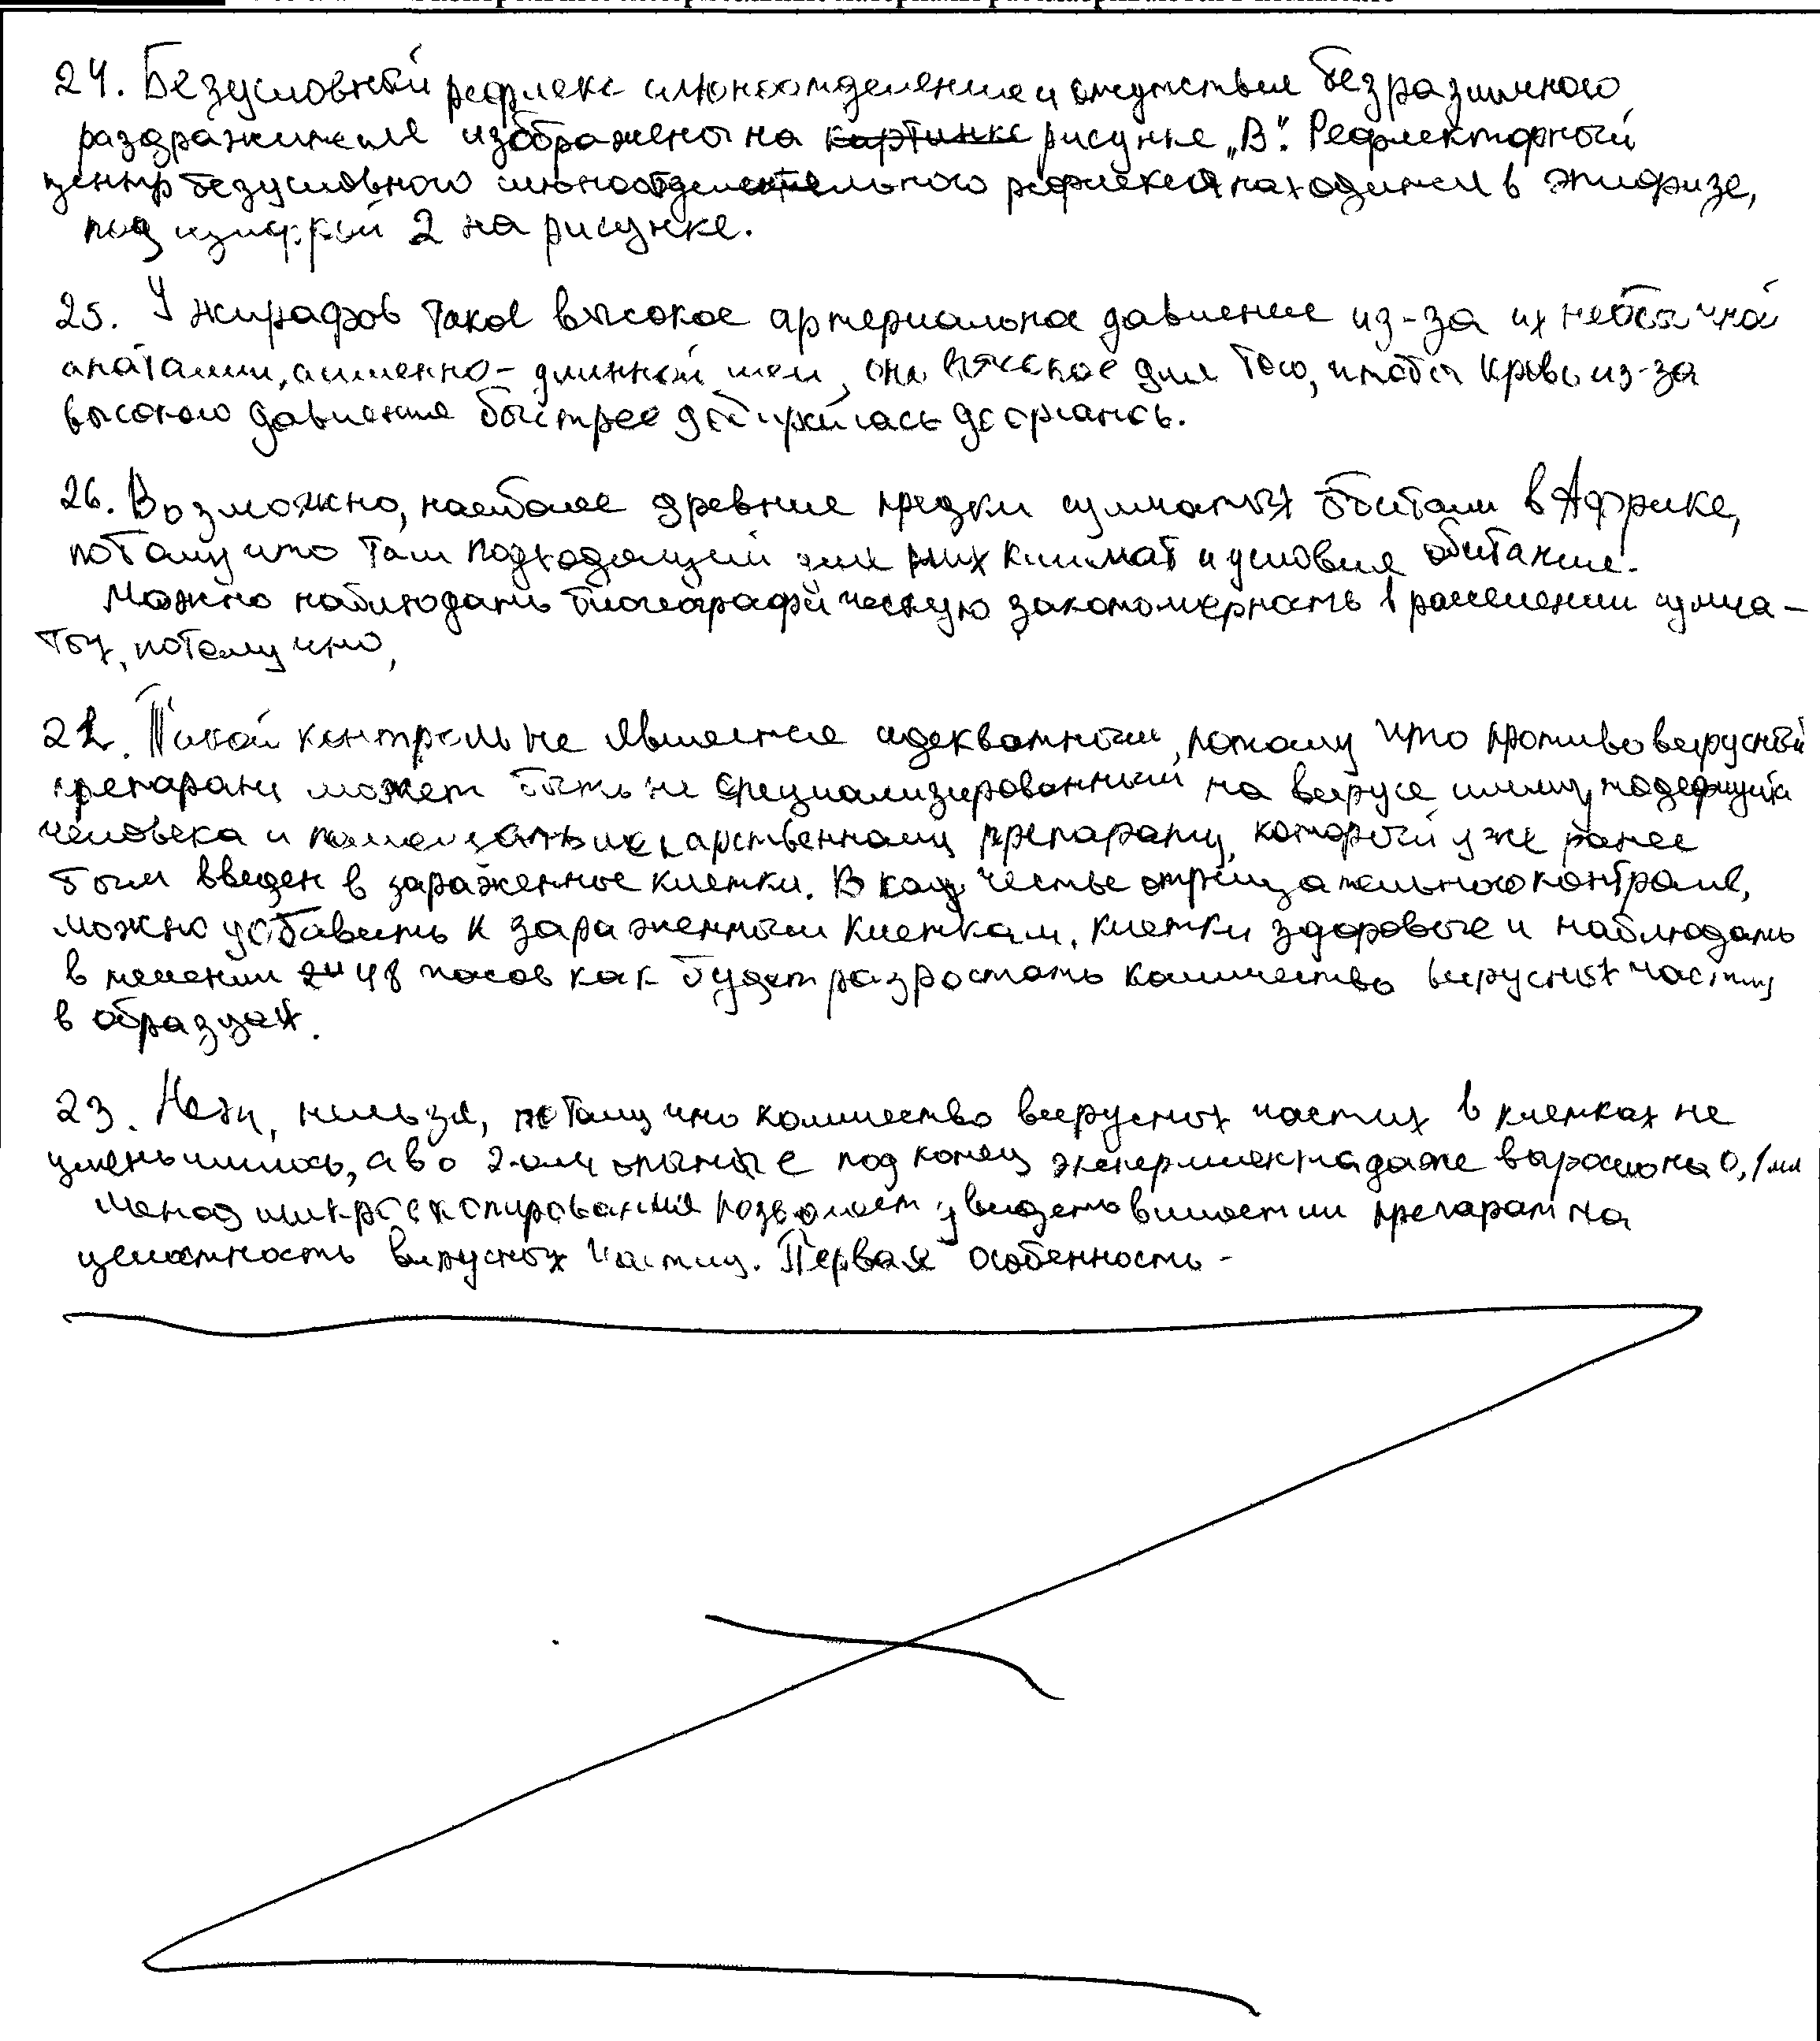 24. Безусловный рефлекс слюноотделение и отсутствие безразличного
раздражителя изображены на картинке рисунке „В". Рефлекторный
центр безусловного слюноотделительного рефлекса находится в эпифизе,
под цифрой 2 на рисунке.
25. У жирафов такое высокое артериальное давление из-за их необычной
анатомии, а именно - длинной шеи, оно высокое для того, чтобы кровь из-за
высокого давления быстрее до органов.
26. Возможно, наиболее древние предки сумчатых обитали в Африке,
потому что там подходящий для них климат и условия обитание.
Можно наблюдать биогеографическую закономерность в расселении сумча-
тых, потому что,
22. Такой контроль не является адекватным, потому что противовирусный
препарат может быть не специализированный на вирусе
человека и лекарственному препарату, который уже ранее
был введен в зараженные клетки. В качестве отрицательного контроля,
можно добавить к зараженным клеткам, клетки здоровые и наблюдать
в течении 24 48 часов как будет разростать количество вирусных частиц
в образцах.
23. Нет, нельзя, потому что количество вирусных частиц в клетках не
уменьшилось, а во 2-ом опыте под конец эксперимента даже выросло на 0,1 мл
Метод микроскопирования позволяет увидеть влияет ли препарат на
целостность вирусных частиц. Первая особенность -